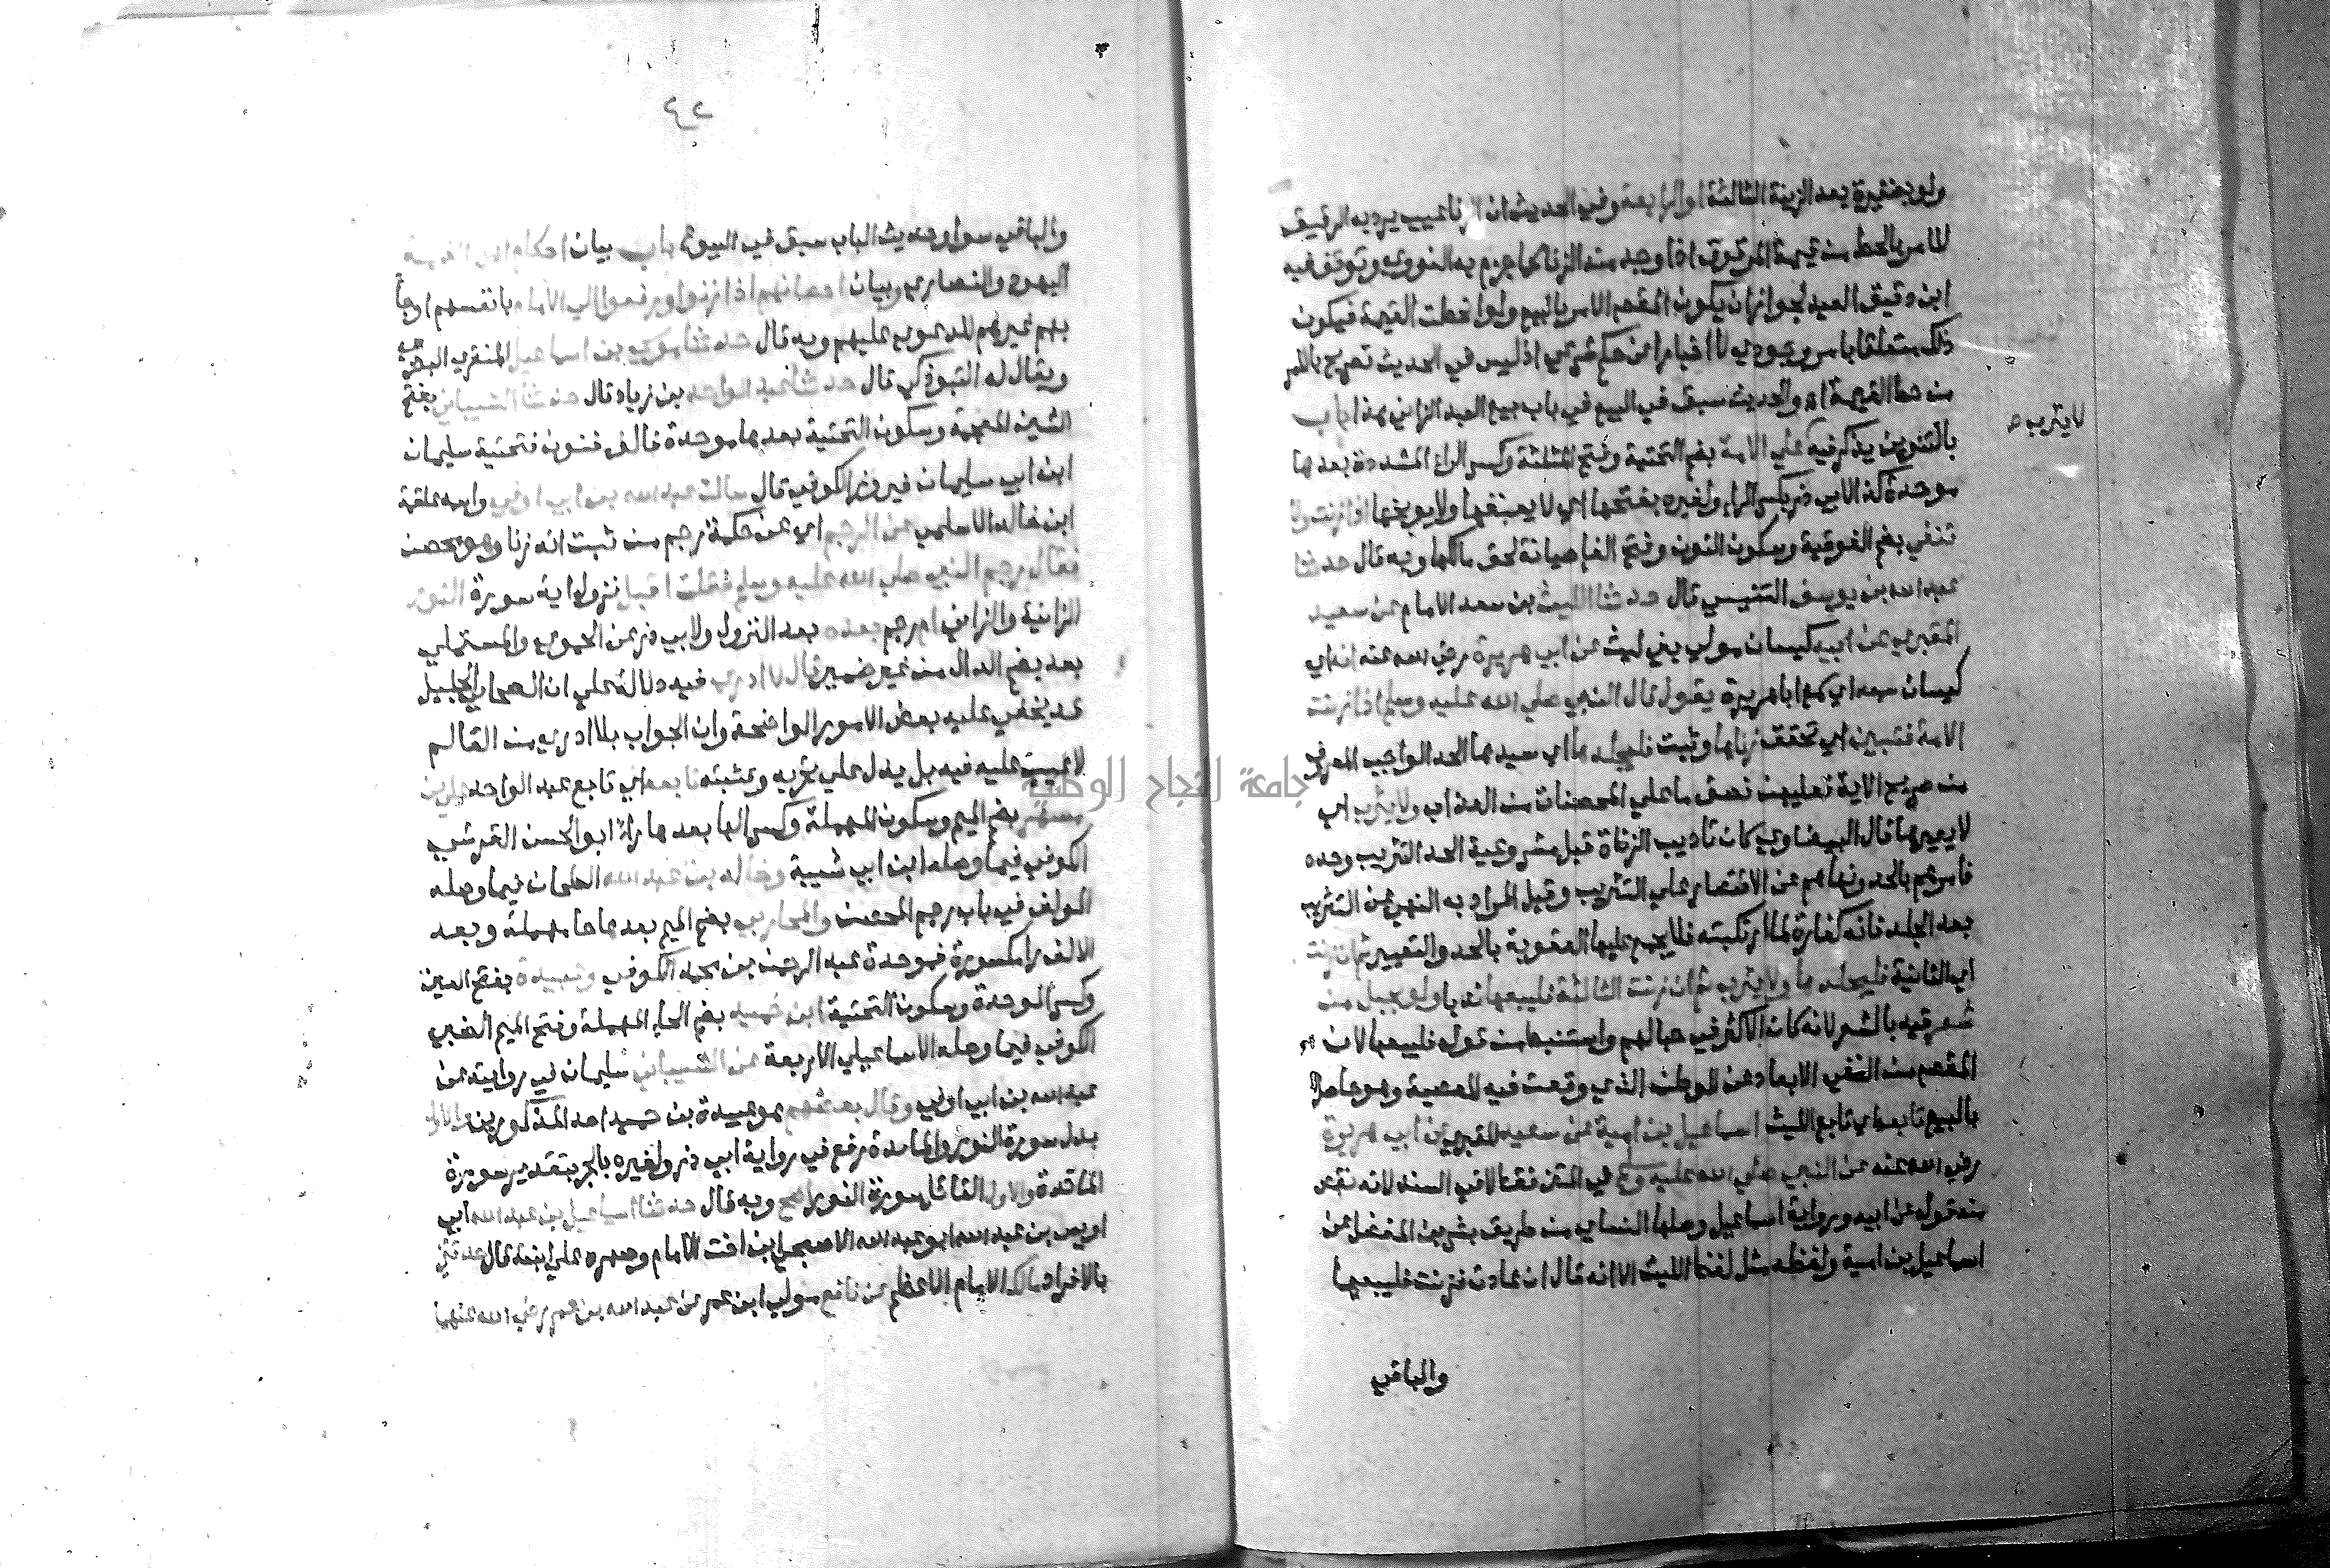 ولو بضفيرة بعد الزنية الثالثة او الرابعة وفي الحديث ان الزنا عيب يرد به الرقيق
للامر بالحط من قيمة المرقوق اذا وجد منه الزنا كما جزم به النووي وتوقف فيه
ابن دقيق العيد لجواز ان يكون المقصد الامر بالبيع ولو انحطت القيمة فيكون
ذلك متعلقا بامر وجودي لا اخبارا عن حكم شرعي اذ ليس في الحديث تصريح بالامر
من حط القيمة اه والحديث سبق في البيع في باب بيع العبد الزاني هذا باب
بالتنوين يذكر فيه علي الامة بضم التحتية وفتح المثلثة وكسر الراء المشددة بعدها
لا يثرب
موحدة كذا لابي ذر بكسر الراء ولغيره بفتحها اي لا يعنفها ولا يوبخها اذا زنت ولا
تنفي بضم الفوقية وسكون النون وفتح الفا صيانة لحق مالكها وبه قال حدثنا
عبد الله بن يوسف التنيسي قال حدثنا الليث بن سعد الامام عن سعيد
المقبري عن ابيه كيسان مولي بني ليث عن ابي هريرة رضي الله عنه انه اي
كيسان سمعه اي سمع ابا هريرة يقول قال النبي صلي الله عليه وسلم اذا زنت
الامة فتبين اي تحقق زناها وثبت فليجلدها اي سيدها الحد الواجب المعروف
من صريح الاية فعليهن نصف ما علي المحصنات من العذاب ولا يثرب اي
لا يعيرها قال البيضاوي كان تاديب الزناة قبل مشروعية الحد التثريب وحده
فامرهم بالحد ونهاهم عن الاقتصار علي التثريب وقيل المراد به النهي عن التثريب
بعد الجلد فانه كفارة لما ارتكبته فلا يجمع عليها العقوبة بالحد والتعيير ثم ان زنت
اي الثانية فليجلدها ولا يثرب ثم ان زنت الثالثة فليبعها ندبا ولو بحبل من
شعر قيد بالشعر لانه كان الاكثر في حبالهم واستنبط من قوله فليبعها لان
المقصد من النفي الابعاد عن الوطن الذي وقعت فيه المعصية وهو حاصل
بالبيع تابعه اي تابع الليث اسماعيل بن امية عن سعيد المقبري عن ابي هريرة
رضي الله عنه عن النبي صلي الله عليه وسلم في المتن فقط لا في السند لانه نقص
منه قوله عن ابيه ورواية اسماعيل وصلها النساي من طريق بشر بن المفضل عن
اسماعيل بن امية ولفظه مثل لفظ الليث الا انه قال ان عادت فزنت فليبعها
والباقي
٤٢
والباقي سوا وحديث الباب سبق في البيوع باب بيان احكام اهل الذمة
اليهود والنصاري وبيان احصانهم اذا زنوا ورفعوا الي الامام بانفسهم او جا
بهم غيرهم للدعوي عليهم وبه قال حدثنا موسي بن اسماعيل المنقري البصري
ويقال له التبوذكي قال حدثنا عبد الواحد بن زياد قال حدثنا الشيباني بفتح
الشين المعجمة وسكون التحتية بعدها موحدة فالف فنون فتحتية سليمان
ابن ابي سليمان فيروز الكوفي قال سالت عبد الله بن ابي اوفي واسمه علقمة
ابن خالد الاسلمي عن الرجم اي عن حكمة رجم من ثبت انه زنا وهو محصن
فقال رجم النبي صلي الله عليه وسلم فقلت اقبل نزول اية سورة النور
الزانية والزاني ام رجم بعده بعد النزول ولابي ذر عن الحموي والمستملي
بعد بضم الدال من غير ضمير قال لا ادري فيه دلالة علي ان الصحابي الجليل
قد يخفي عليه بعض الامور الواضحة وان الجواب بلا ادري من العالم
لا عيب عليه فيه بل يدل علي تحريه وتثبته تابعه اي تابع عبد الواحد علي بن
مسهر بضم الميم وسكون المهملة وكسر الها بعدها راء ابو الحسن القرشي
الكوفي فيما وصله ابن ابي شيبة وخالد بن عبد الله الطحان فيما وصله
المولف في باب رجم المحصن والمحاربي بضم الميم بعدها حا مهملة وبعد
الالف را مكسورة فموحدة عبد الرحمن بن محمد الكوفي وعبيدة بفتح العين
وكسر الموحدة وسكون التحتية ابن حميد بضم الحاء المهملة وفتح الميم الضبي
الكوفي فيما وصله الاسماعيلي الاربعة عن الشيباني سليمان في روايته عن
عبد الله بن ابي اوفي وقال بعضهم هو عبيدة بن حميد احد المذكورين المائدة
بدل سورة النور والمائدة رفع في رواية ابي ذر ولغيره بالجر بتقدير سورة
المائدة والاول القائل سورة النور اصح وبه قال حدثنا اسماعيل بن عبد الله ابي
اويس بن عبد الله ابو عبد الله الاصبحي ابن اخت الامام وصهره علي ابنته قال حدثني
بالافراد مالك الامام الاعظم عن نافع مولي ابن عمر عن عبد الله بن عمر رضي الله عنهما
جامعة النجاح الوطنية